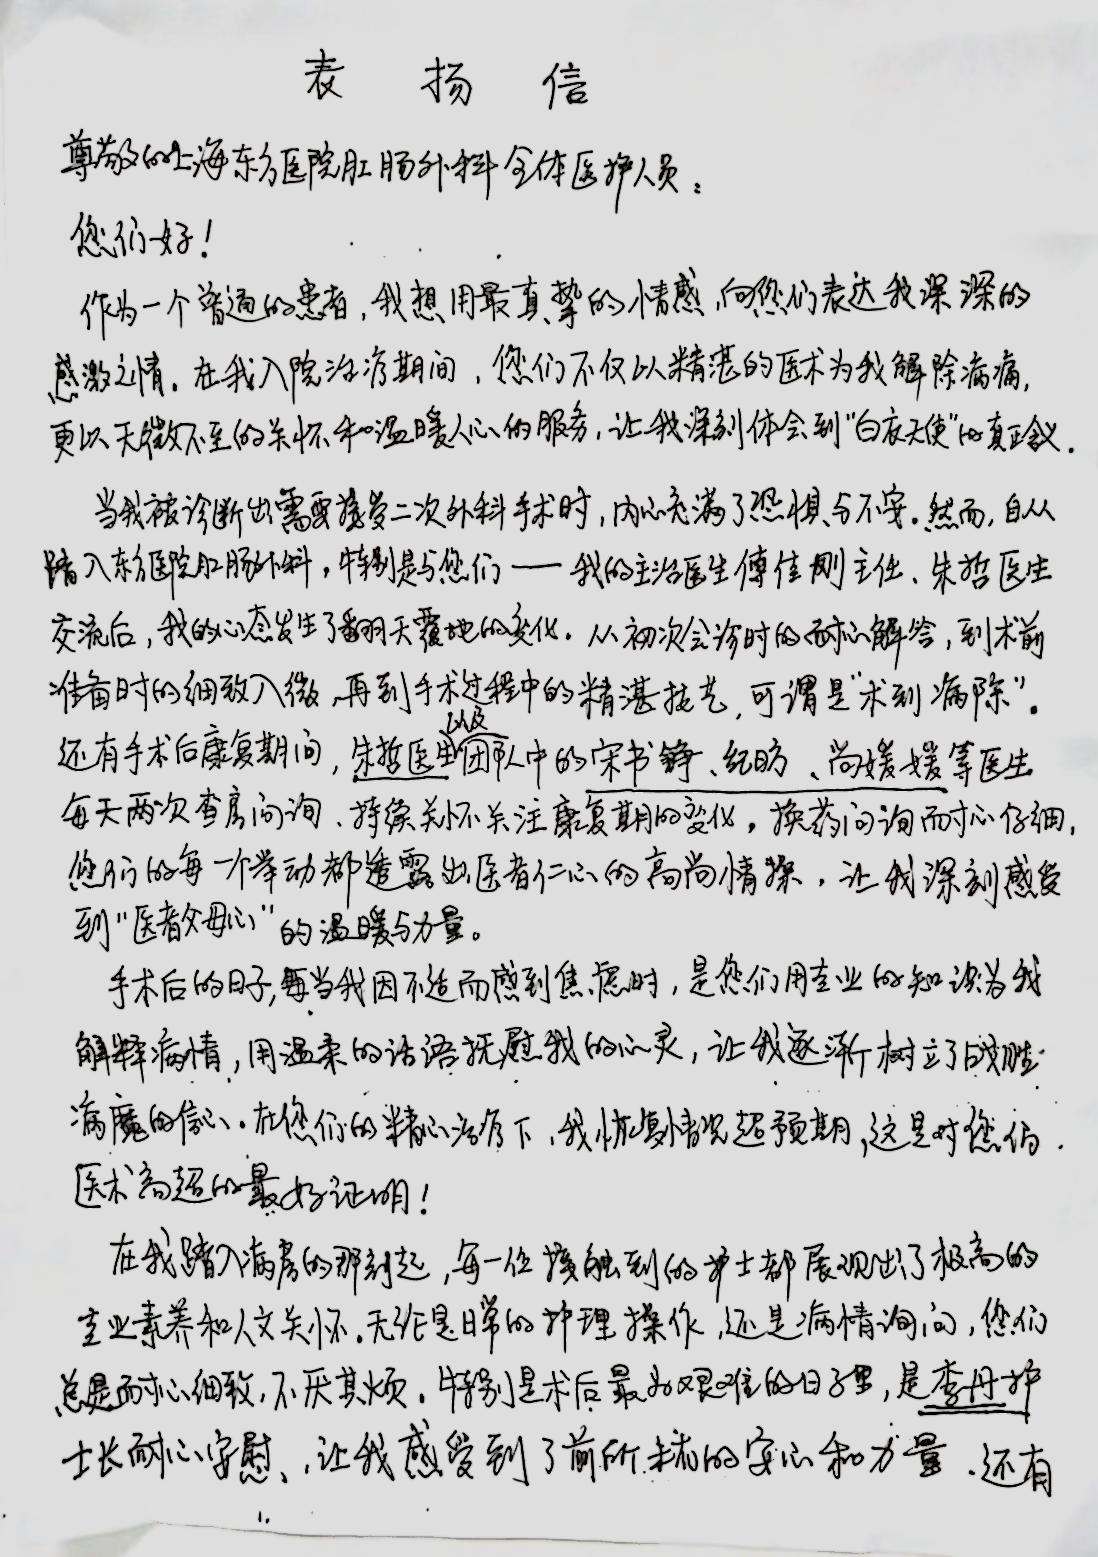 表扬信
尊敬的上海东方医院肛肠外科全体医护人员:
您们好!
作为一个普通的患者,我想用最真挚的情感,向您们表达我深深的
感激之情。在我入院治疗期间,您们不仅以精湛的医术为我解除病痛,
更以无微不至的关怀和温暖人心的服务,让我深刻体会到"白衣天使"的真正含义.
当我被诊断出需要接受二次外科手术时,内心充满了恐惧与不安。然而,自从
踏入东方医院肛肠外科,特别是与您们——我的主治医生傅佳刚主任、朱哲医生
交流后,我的心态发生了翻天覆地的变化。从初次会诊时的耐心解答,到术前
准备时的细致入微,再到手术过程中的精湛技艺,可谓是"术到病除"。
还有手术后康复期间,朱哲医生以及团队中的宋书铮、纪昉、尚媛媛等医生
每天两次查房问询、持续关怀关注康复期的变化,换药问询而耐心仔细,
您们的每一个举动都透露出医者仁心的高尚情操,让我深刻感受
到"医者父母心"的温暖与力量。
手术后的日子,每当我因不适而感到焦虑时,是您们用专业的知识为我
解释病情,用温柔的话语抚慰我的心灵,让我逐渐树立了战胜
病魔的信心。在您们的精心治疗下,我恢复情况超预期,这是对您们
医术高超的最好证明!
在我踏入病房的那刻起,每一位接触到的护士都展现出了极高的
专业素养和人文关怀。无论是日常的护理操作,还是病情询问,您们
总是耐心细致,不厌其烦。特别是术后最为艰难的日子里,是李丹护
士长耐心安慰、,让我感受到了前所未有的安心和力量.还有
1.